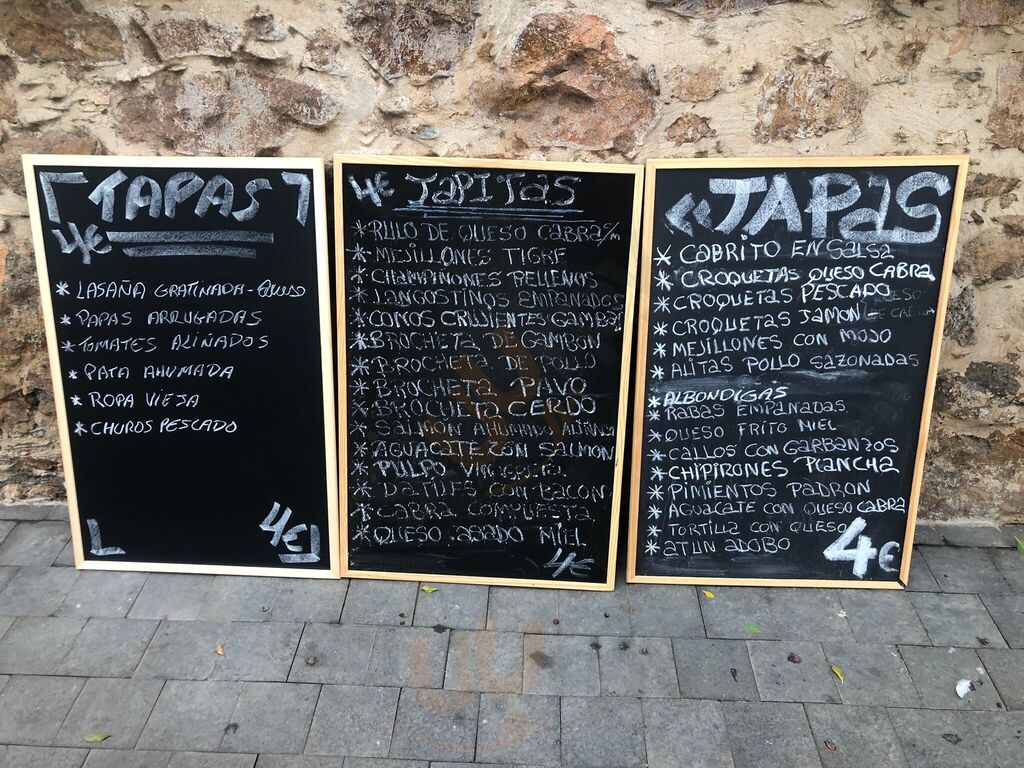 TAPAS
4€
* LASAÑA GRATINADA - QUESO
* PAPAS ARRUGADAS
* TOMATES ALIÑADOS
* PATA AHUMADA
* ROPA VIEJA
* CHUROS PESCADO
4€
4€ TAPITAS
* RULO DE QUESO CABRA/M
* MEJILLONES TIGRE
* CHAMPIÑONES RELLENOS
* LANGOSTINOS EMPANADOS
* COMOS CRUJIENTES GAMBAS
* BROCHETA DE GAMBON
* BROCHETA DE POLLO
* BROCHETA PAVO
* BROCHETA CERDO
* SALMON AHUMADO ALIÑADO
* AGUACATE CON SALMON
* PULPO VINAGRETA
* DATILES CON BACON
* CABRA COMPUESTA
* QUESO ASADO MIEL
4€
<< TAPAS
* CABRITO EN SALSA
* CROQUETAS QUESO CABRA
* CROQUETAS PESCADO
* CROQUETAS JAMON
* MEJILLONES CON MOJO
* ALITAS POLLO SAZONADAS
* ALBONDIGAS
* RABAS EMPANADAS
* QUESO FRITO MIEL
* CALLOS CON GARBANZOS
* CHIPIRONES PLANCHA
* PIMIENTOS PADRON
* AGUACATE CON QUESO CABRA
* TORTILLA CON QUESO
* ATUN ADOBO
4€